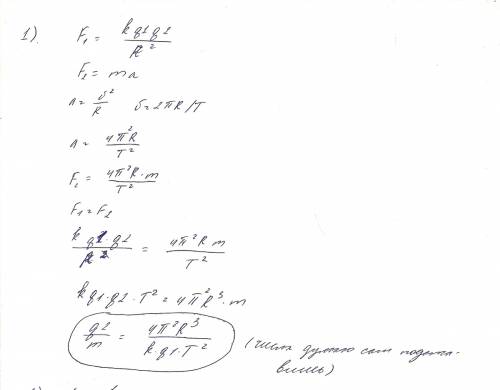 1). F₁ = kq1q1/R²
F₂ = ma
a = υ²/R υ = 2πR/T
a = 4π²R/T²
F₂ = 4π²R·m/T²
F₁ = F₂
kq1·q2/R² = 4π²R m/T²
kq1·q2·T² = 4π²R³·m
q2/m = 4π²R³/k·q1·T² (числа думаю сам подста-
вишь)